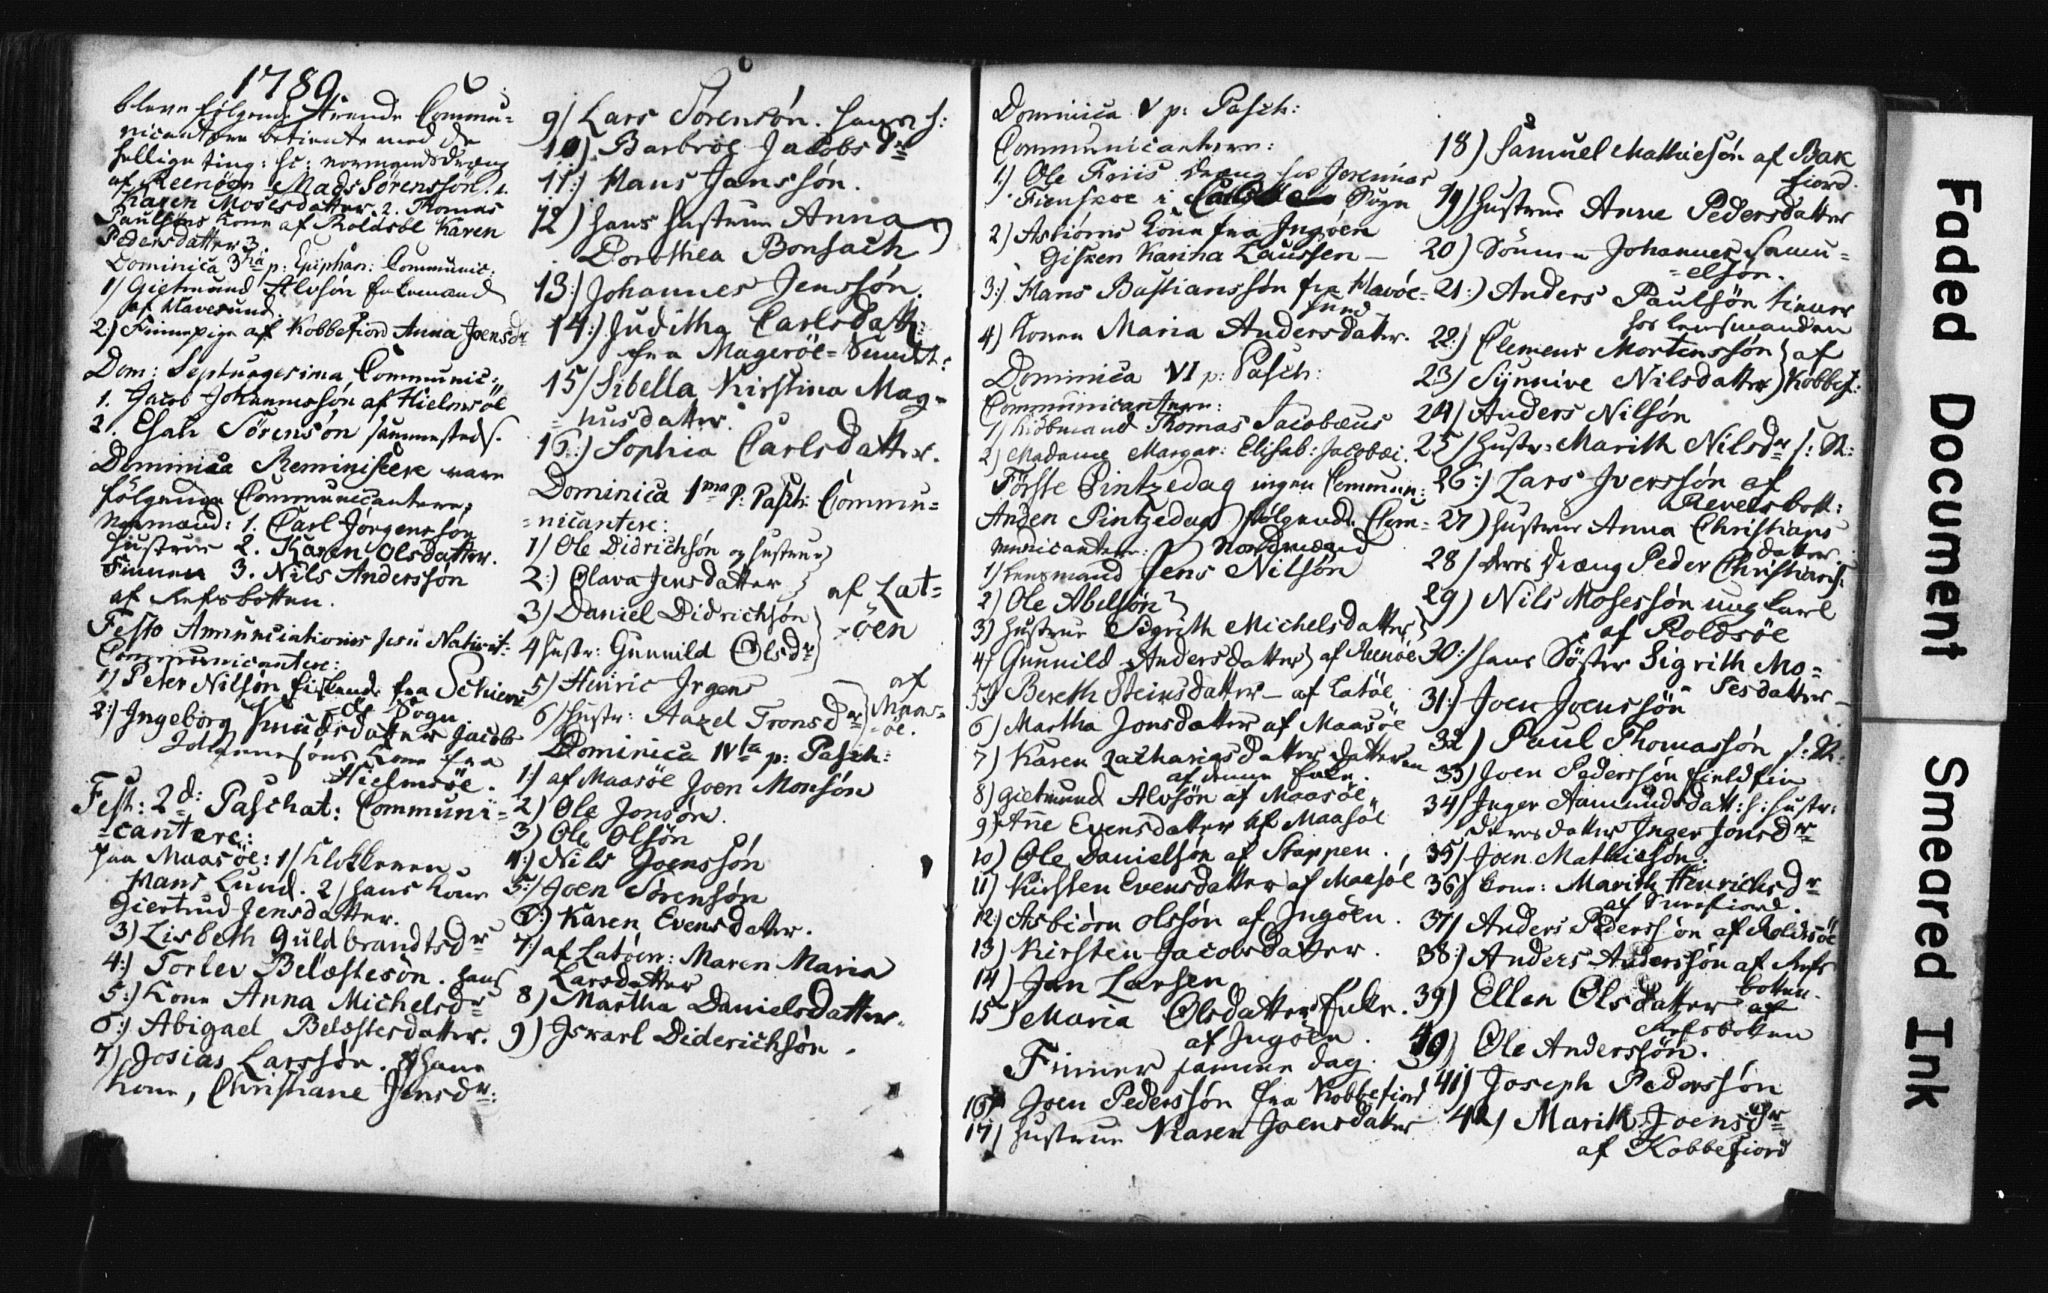 1789
bleve følgende Commu-
nicantere betiente med de
hellige ting: sc: normandsdræng
af Reenöen Mads Sörensson. 1.
Karen Mosesdatter 2. Thomas
Paulsöns Kone af Roldsöe Karen
Pedersdatter 3.
Dominica 3tia p: Epiphan: Communic:
1) Gietmund Alvsön Enkemand
af Havesund.
2) Finnepige af Kobbefiord Anna Joensdr
Dom: Septuagesima Communic:
1. Jacob Johannessön af Hielmsöe
2. Esah Sörensön sammesteds.
Dominica Reminiscere vare
følgende Communicantere:
Normænd: 1. Carl Jörgenssön
Hustrue 2. Karen Olsdatter.
Finnen 3. Nils Anderssön
af Refsbotten.
Festo Annunciationis Jesu Nativit:
Communicantere:
1) Peter Nilsön fiskende fra Schierv-
öe Sogn
2) Ingeborg Knudsdatter Jacob
Johannesöns Kone fra
Hielmsöe.
Fest: 2d: Paschat: Communi-
-cantere:
paa Maasöe: 1) Klokkeren
Hans Lund. 2) hans Kone
Giertrud Jensdatter.
3) Lisbeth Guldbrandtsdr
4) Torlev Belæstesön. hans
5) Kone Anna Michelsdr
6) Abigael Belæstesdatter.
7) Josias Larssön. 8 hans
Kone, Christiane Jensdr:
9) Lars Sörensön. hans h:
10) Barbröe Jacobsdr
11) Hans Janssön.
12) hans hustrue Anna
Dorothea Bonsach
13) Johannes Jenssön.
14) Juditha Carlsdatt:
fra Mageröe-Sundt:
15) Sibella Kirstina Mag-
-nusdatter.
16) Sophia Carlsdatter.
Dominica 1ma p: Pasch: Commu-
-nicantere:
1) Ole Didrichsön og hustrue
2) Olava Jensdatter
3) Daniel Didrichsön
4 Hustr: Gunnild Olsdr
af Lat-
-öen
5) Hinric Jrgens
6) Hustr: Aazel Tronsdr
af
Maas-
öe.
Dominica IVta p: Pasch:
1) af Maasöe Joen Monsön
2) Ole Jonsön.
3) Ole Olsön
4) Nils Joenssön
5) Joen Sörensön
6) Karen Evensdatter.
7) af Latöen: Maren Maria
Larsdatter
8) Martha Danielsdatter.
9) Israel Diderichsön.
Dominica V p: Pasch:
Communicantere:
1) Ole Friis Dreng hos Jeremias
i Sogn
2) Asbiörns Kone fra Ingöen
Gisken Karina Laussen
3) Hans Bastianssön fra Havöe-
sund
4) Konen Maria Andersdatter.
Dominica VI p: Pasch:
Communicantere:
1) Kiöbmand Thomas Jacobæus
2) Madame Margar: Elisab: Jacobæi.
Förste Pintzedag ingen Commun:
Anden Pintzedag følgende Com-
municantere: Nordmænd
1) Lensmand Jens Nilsön
2) Ole Abelsön
3) Hustrue Sigrith Michelsdatter
4) Gunnild Andersdatter af Reenöe
5) Bereth Steinsdatter af Latöe
6) Martha Jonsdatter af Maasöe
7) Karen Zachariasdatter datteren
af denne Enke.
8) Gietmund Alvsön af Maasöe
9) Anne Evensdatter af Maasöe
10) Ole Danielsön af Stappen.
11) Kirsten Evensdatter af Maasöe
12) Asbiörn Olssön af Ingöen.
13) Kirsten Jacobsdatter.
14) Jan Larsen
15) Maria Olsdatter Enke.
af Ingöen.
Finner samme dag.
16) Joen Pederssön fra Kobbefiord
17) Hustrue Karen Joensdatter
18) Samuel Mathiesön af Bak
fiord.
19) Hustrue Anne Pedersdatter
20) Sönnen Johannes Samu-
-elsön.
21) Anders Paulsön tiener
hos lensmanden
22) Clemens Mortenssön
23) Synnive Nilsdatter
af
Kobbef:
24) Anders Nilsön
25) Hustr: Marith Nilsdr s: St:
26) Lars Iverssön af
Reversbott:
27) Hustrue Anna Christians
datter
28) deres Dræng Peder Christians:
29) Nils Mosessön ung Karl
af Roldsöe
30) hans Söster Sigrith Mo-
sesdatter
31) Joen Joenssön
32) Paul Thomassön s: St:
33) Joen Pederssön fieldfin
34) Inger Aamundsdatt: h: hustr:
deres datter Inger Jonsdr
35) Joen Mathiesön.
36) Kone: Marith Henrichsdr
af Snefiord.
37) Anders Pederssön af Roldsöe
38) Anders Anderssön af Refs
botten.
39) Ellen Olsdatter af
Refsbotten
40) Ole Anderssön.
41) Joseph Pederssön
42) Marith Joensdr
af Kobbefiord
Faded Document
Smeared Ink